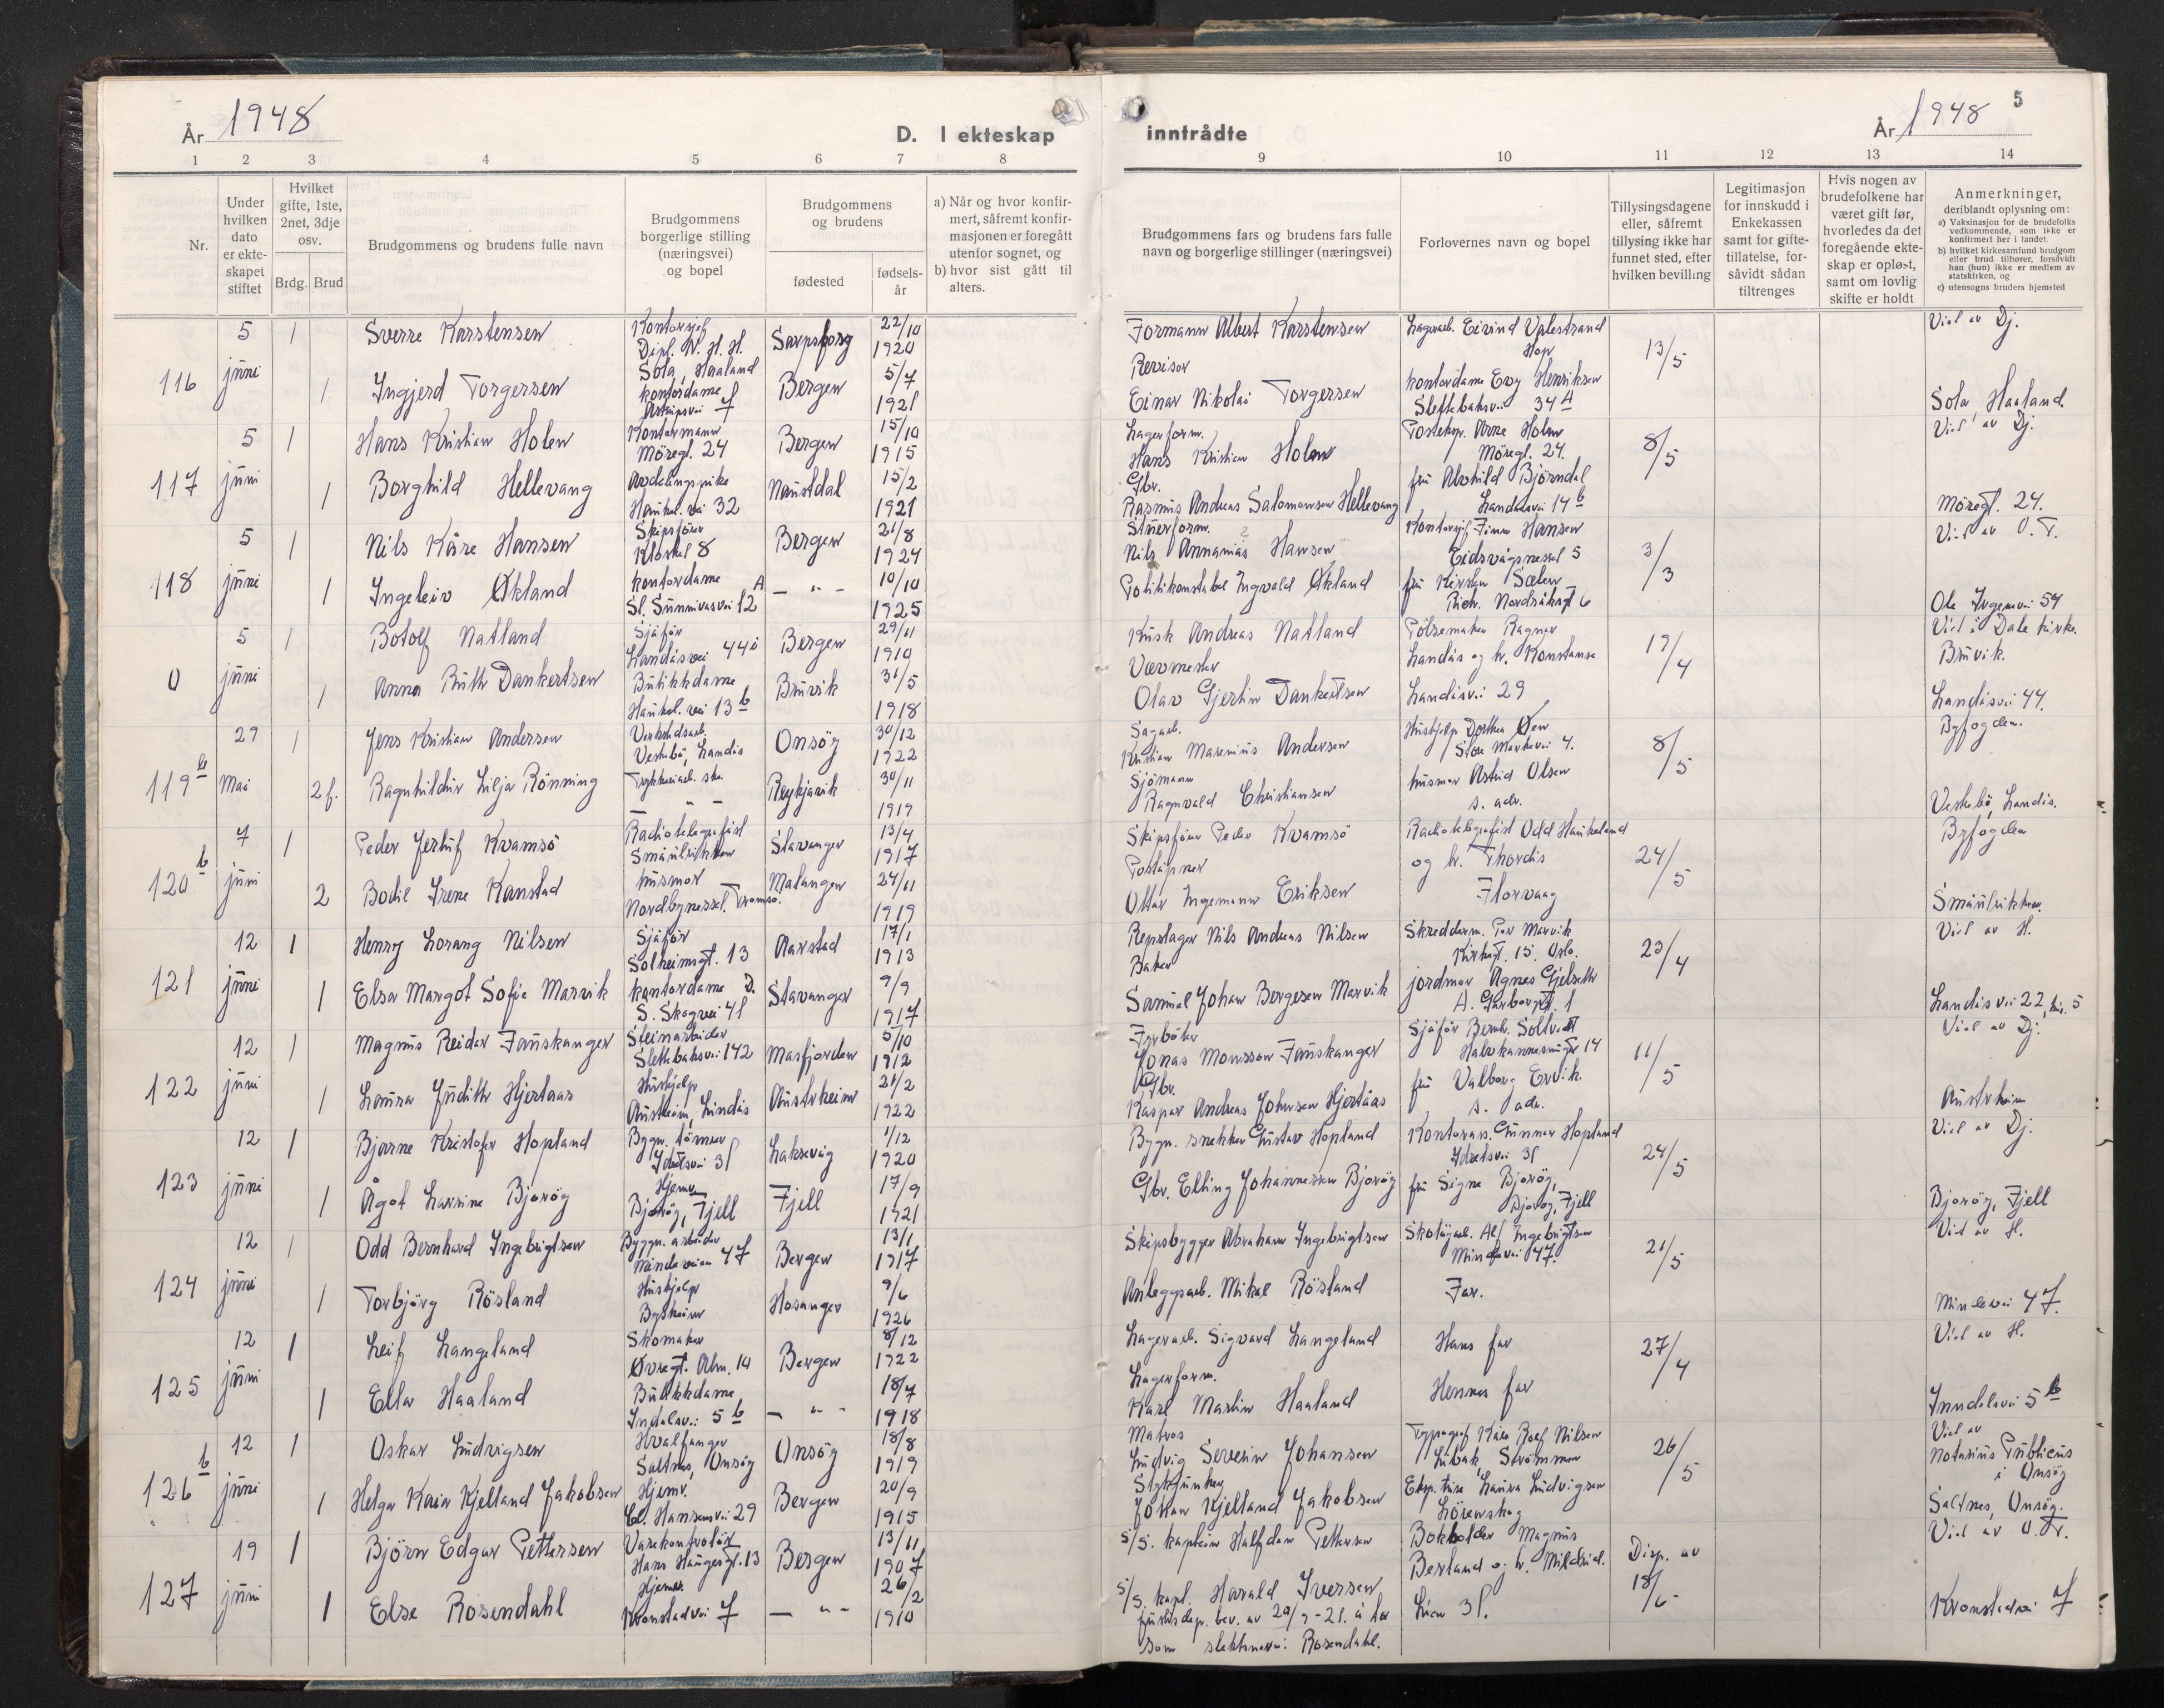 År 1948
D. I ekteskap
1 2 3 4 5 6 7 8
Nr.
Under hvilken dato er ekte-skapet stiftet
Hvilket gifte, 1ste, 2net, 3dje osv.
Brdg. Brud
Brudgommens og brudens fulle navn
Brudgommens borgerlige stilling (næringsvei) og bopel
Brudgommens og brudens
fødested
fødsels-år
a) Når og hvor konfir-mert, såfremt konfir-masjonen er foregått utenfor sognet, og
b) hvor sist gått til alters.
inntrådte
År 1948
5
9 10 11 12 13 14
Brudgommens fars og brudens fars fulle navn og borgerlige stillinger (næringsvei)
Forlovernes navn og bopel
Tillysingsdagene eller, såfremt tillysing ikke har funnet sted, efter hvilken bevilling
Legitimasjon for innskudd i Enkekassen samt for gifte-tillatelse, for-såvidt sådan tiltrenges
Hvis nogen av brudefolkene har været gift før, hvorledes da det foregående ekte-skap er opløst, samt om lovlig skifte er holdt
Anmerkninger,
deriblandt oplysning om:
a) Vaksinasjon for de brudefolks vedkommende, som ikke er konfirmert her i landet.
b) hvilket kirkesamfund brudgom eller brud tilhører, forsåvidt han (hun) ikke er medlem av statskirken, og
c) utensogns bruders hjemsted
116 5 juni
1 Sverre Karstensen Kontorsjef Dipl. N. H. H. Sola, Haaland Sarpsborg 22/10 1920 Formann Albert Karstensen Lagerarb. Eivind Valestrand Hop 13/5 Viel av Dj.
1 Ingjerd Torgersen kontordame 7 Bergen 5/7 1921 Revisor Einar Nikolai Torgersen kontordame Evy Henriksen Slettebaksvei 34 A Sola, Haaland.
117 5 juni
1 Hans Kristian Holen Kontormann Möregt. 24 Bergen 15/10 1915 Lagerform. Hans Kristian Holen Posteksp. Arne Holen Möregt. 24. 8/5 Viel av Dj.
1 Borghild Hellevang Avdelingspike Haukel. vei 32 Naustdal 15/2 1921 Gbr. Rasmus Andreas Salomonsen Hellevang fru Alvhild Björndal Landåsvei 14 b Möregt. 24.
118 5 juni
1 Nils Kåre Hansen Skipsförer 8 Bergen 21/8 1924 Stuerform. Nils Annanias Hansen Kontorsjef Finn Hansen Eidsvågnesset 5 3/3 Viel av O. T.
1 Ingeleiv Økland kontordame St. Sunnivasvei 12 A — " — 10/10 1925 Politikonstabel Ingvald Økland fru Kirsten Sælen Rich. Nordråksgt 6 Ole Irgensvei 54
0 5 juni
1 Botolf Natland Sjåför Landåsvei 44 Bergen 29/11 1910 Kusk Andreas Natland Pölsemaker Ragnar Landås og hr. Konstanse 17/4 Viel i Dale kirke. Bruvik.
1 Anna Ruth Dankertsen Butikkdame Haukel. vei 13 b Bruvik 31/5 1918 Vevmester Olav Gjertin Dankertsen Landåsvei 29 Landåsvei 44.
119 b 29 Mai
1 Jens Kristian Andersen Verkstedsarb. Vestebö, Landås Onsöy 30/12 1922 Sagarb. Kristian Marenius Andersen Hushjelp Dorthea Øen Store Markevei 4. 8/5 Byfogden.
2 f. Ragnhildur Lilja Rönning — " — Reykjavik 30/11 1919 Sjömann Ragnvald Christiansen husmor Astrid Olsen s. adr. Vestebö, Landås.
120 b 7 juni
1 Peder Jertuf Kvamsö Radiotelegrafist Småulrikken Stavanger 13/4 1917 Skipsförer Peder Kvamsö Radiotelegrafist Odd Haukeland og hr. Thordis Florvaag 24/5 Byfogden
2 Bodil Irene Kanstad husmor Nordbynesset. Tromsø. Malangen 24/11 1919 Poståpner Ottar Ingemann Eriksen Småulrikken
121 12 juni
1 Henry Lorang Nilsen Sjåför Solheimsgt. 13 Aarstad 17/1 1913 Repslager Nils Andreas Nilsen Skredderm. Per Marvik Kirkegt. 15, Oslo. 23/4 Viel av H.
1 Elsa Margot Sofie Marvik kontordame D. S. Skogvei 41 Stavanger 9/9 1917 Baker Samuel Johan Bergesen Marvik jordmor Agnes Gjelseth A. Garborgsgt. 1 Landåsvei 22, hus. 5
122 12 juni
1 Magnus Reidar Fauskanger Steinarbeider Slettebaksvei 142 Masfjorden 5/10 1912 Fyrböter Jonas Monsson Fauskanger Sjåför Bernh. Soltvedt 14 11/5 Viel av Dj.
1 Laura Judith Hjertaas Hushjelp Austrheim, Lindås Austrheim 21/2 1922 Gbr. Kaspar Andreas Johnsen Hjertaas fru Valborg Ervik. s. adr. Austrheim
123 12 juni
1 Bjarne Kristofer Hopland Bygn. tömrer Idrettsvei 31 Laksevåg 1/12 1920 Bygn. snekker Gustav Hopland Kontorass. Gunnar Hopland Idrettsvei 31 24/5 Viel av Dj.
1 Ågot Larsine Bjoröy Hjemv. Bjoröy, Fjell Fjell 17/9 1921 Gbr. Elling Johannessen Bjoröy fru Signe Bjoröy, Bjoröy, Fjell Bjoröy, Fjell
124 12 juni
1 Odd Bernhard Ingebrigtsen Byggn. arbeider Mindeveien 47 Bergen 13/1 1917 Skipsbygger Abraham Ingebrigtsen Skotöyarb. Alf Ingebrigtsen Mindevei 47. 21/5 Viel av H.
1 Torbjörg Rösland Hushjelp Byskoven Hosanger 9/6 1926 Anleggsarb. Mikal Rösland Far. Mindevei 47.
125 12 juni
1 Leif Langeland Skomaker Øvregt. Alm. 14 Bergen 8/12 1922 Lagerarb. Sigvard Langeland Hans far 27/4 Viel av H.
1 Ella Haaland Butikkdame Inndalsv.: 5 b — " — 18/7 1918 Lagerform. Karl Martin Haaland Hennes far Inndalsvei 5 b
126 b 12 juni
1 Oskar Ludvigsen Hvalfanger Saltnes, Onsöy Onsöy 18/8 1919 Matros Ludvig Severin Johansen Typograf Kåre Rolf Nilsen Strömmen 26/5 Viel av Notarius Publicus i Onsöy
1 Helga Karin Kjelland Jakobsen Hjemv. Cl. Hansensvei 29 Bergen 20/9 1915 Johan Kjelland Jakobsen Eksp. trise Laura Ludvigsen Lörenskog Saltnes, Onsöy.
127 19 juni
1 Björn Edgar Pettersen Varekontrolör Hans Haugesgt. 13 Bergen 13/11 1907 s/s. kaptein Halfdan Pettersen Bokholder Magnus Berland og hr. Mildrid. Disp. av 18/6 Viel av O. Tr.
1 Else Rosendahl Hjemv. Kronstadvei 7 — " — 26/2 1910 s/s. kapt. Harald Iversen justisdep. bev. av 20/9 - 21. å ha som slektsnavn: Rosendahl. Lien 31. Kronstadvei 7